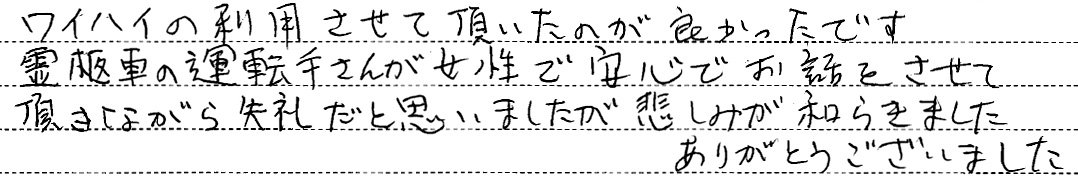 ワイハイの利用させて頂いたのが良かったです
霊柩車の運転手さんが女性で安心でお話をさせて
頂きながら失礼だと思いましたが悲しみが和らきました
ありがとうございました